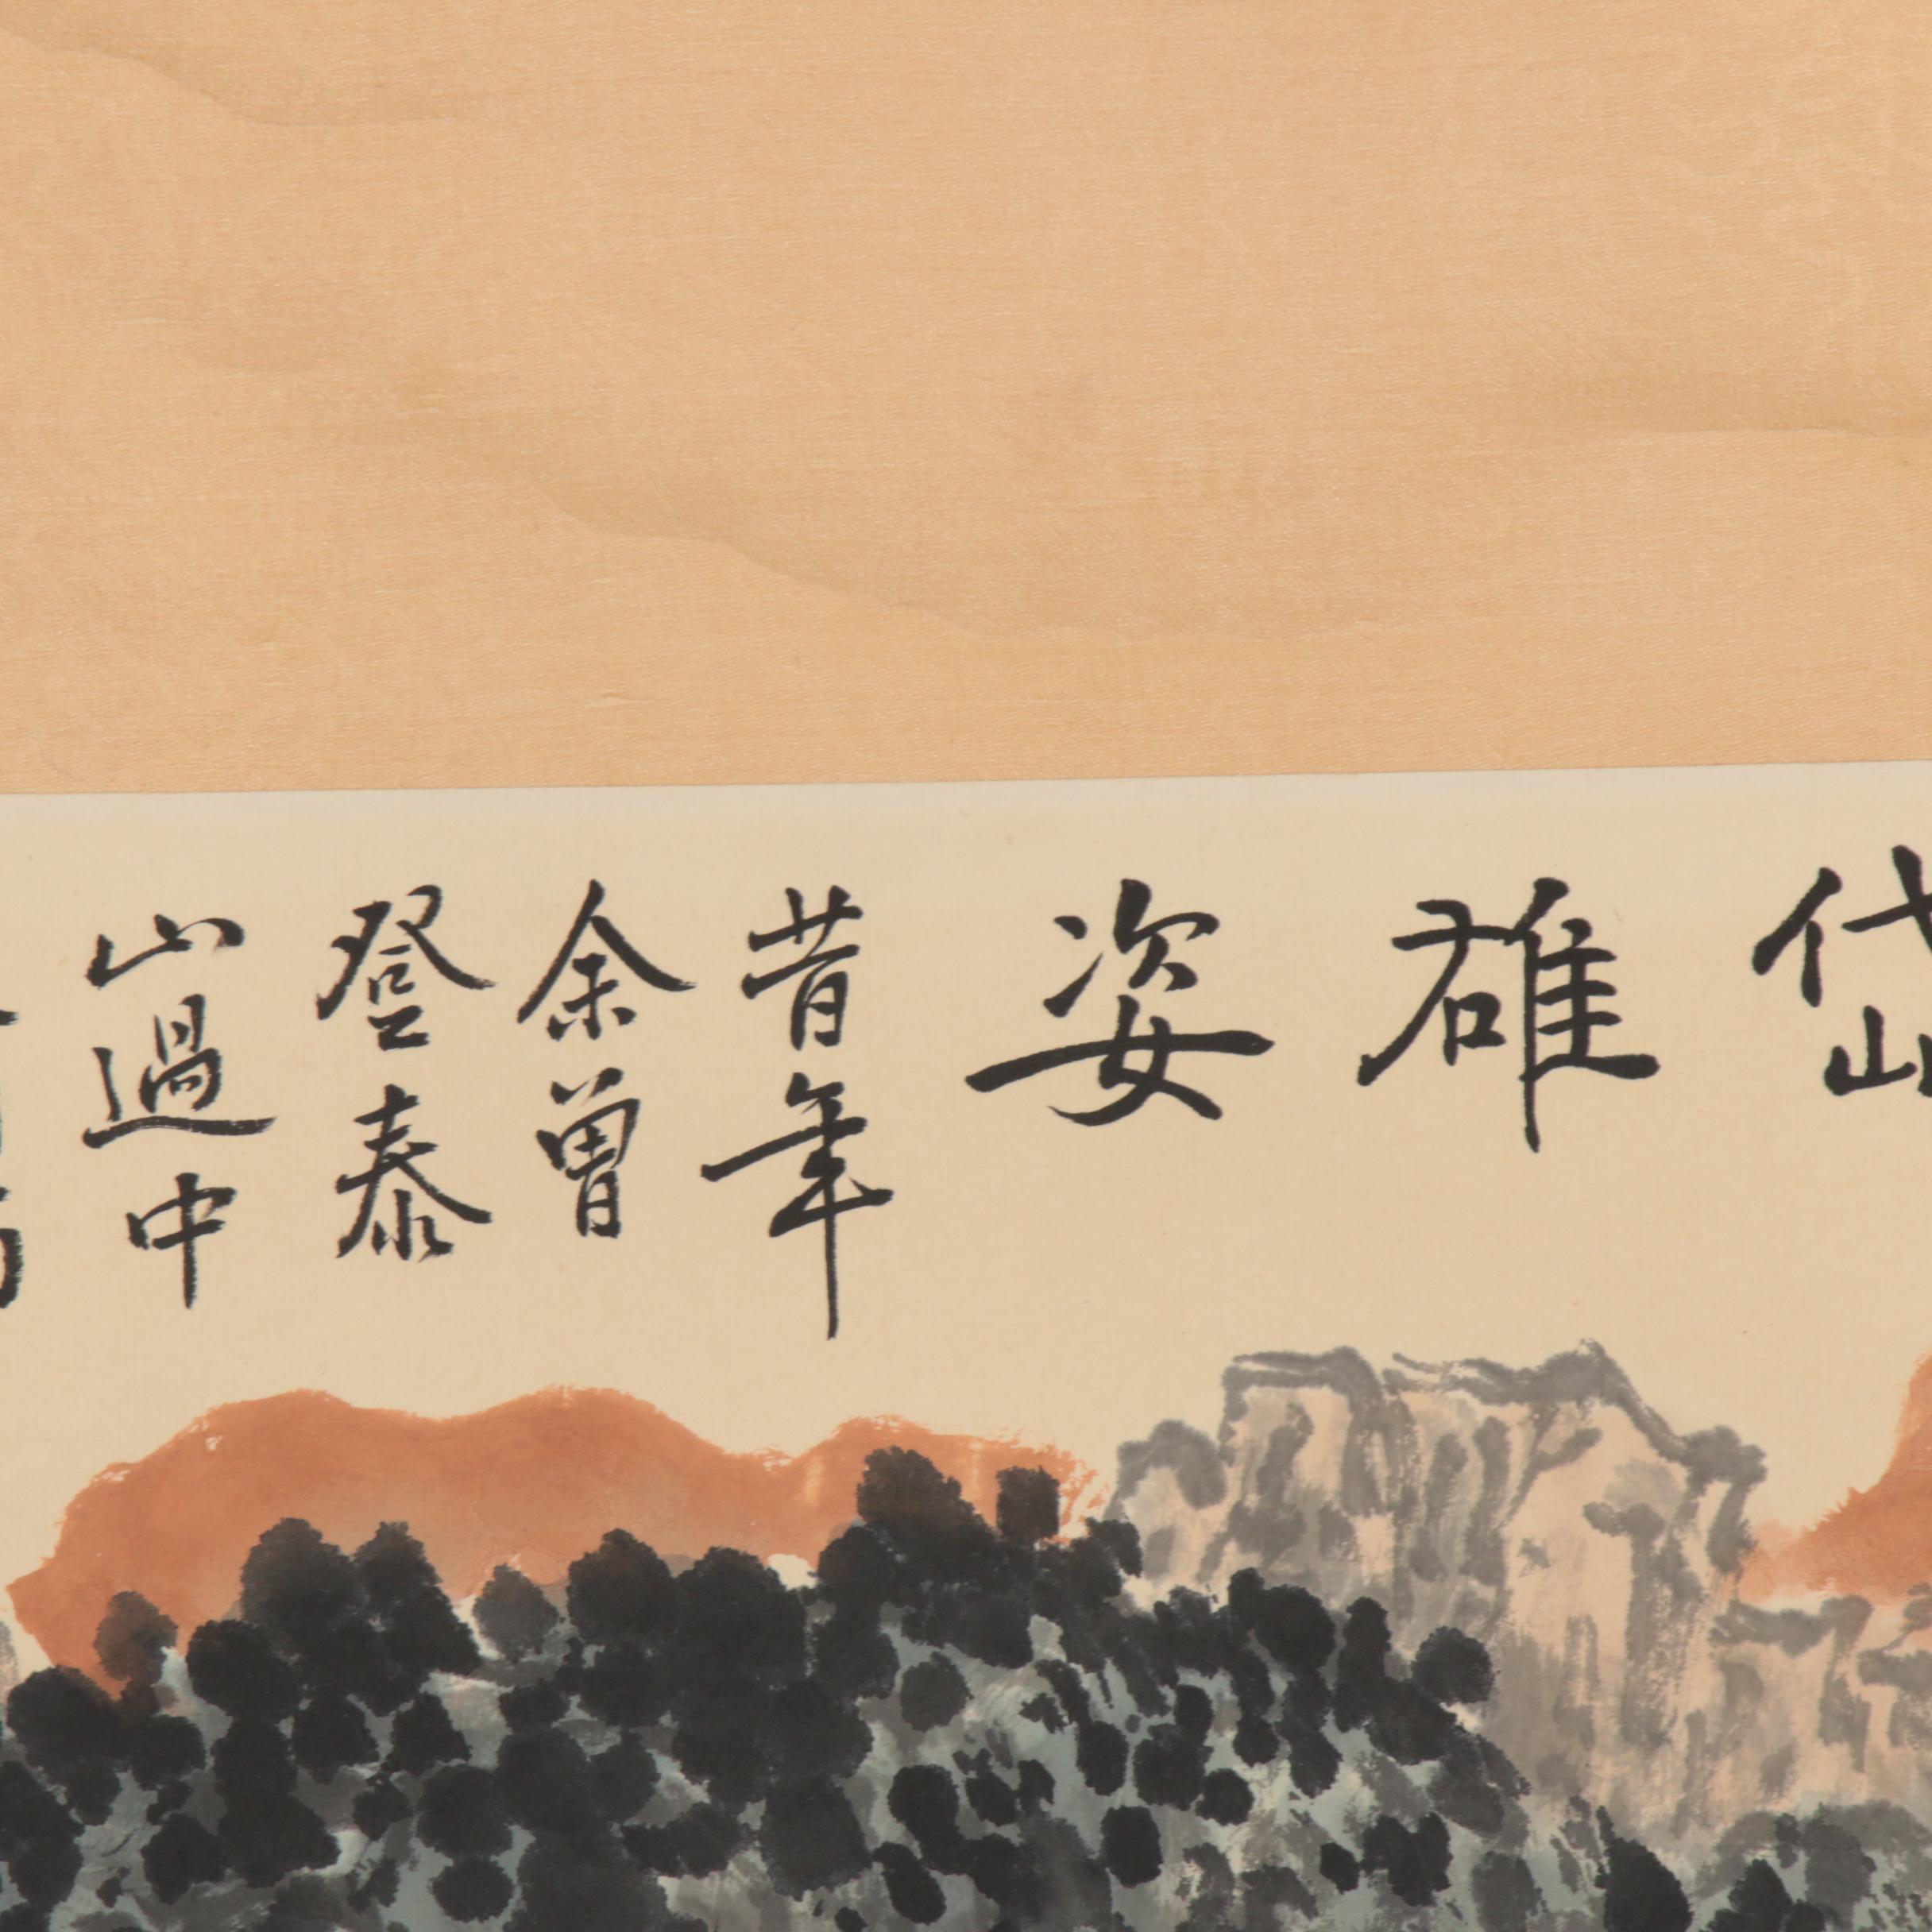 岱
雄
姿
昔年
余曾
登泰
山過中